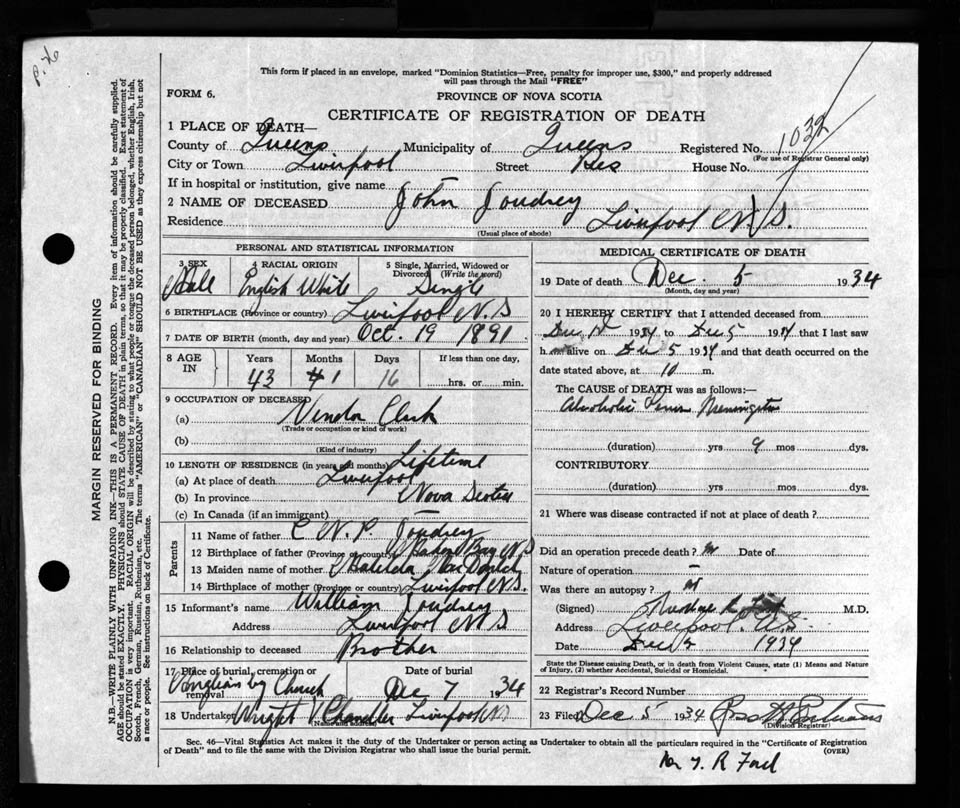 This form if placed in an envelope, marked "Dominion Statistics—Free, penalty for improper use, $300," and properly addressed
will pass through the Mail "FREE"
FORM 6.
PROVINCE OF NOVA SCOTIA
CERTIFICATE OF REGISTRATION OF DEATH
1 PLACE OF DEATH—
County of Queens Municipality of Queens Registered No. 1032
(For use of Registrar General only)
City or Town Liverpool Street Res House No.
If in hospital or institution, give name
2 NAME OF DECEASED John Joudrey
Residence Liverpool N.S.
(Usual place of abode)
PERSONAL AND STATISTICAL INFORMATION
3 SEX 4 RACIAL ORIGIN 5 Single, Married, Widowed or Divorced (Write the word)
Male English White Single
6 BIRTHPLACE (Province or country) Liverpool N.S
7 DATE OF BIRTH (month, day and year) Oct. 19 1891
8 AGE IN Years Months Days If less than one day,
43 1 16 hrs. or min.
9 OCCUPATION OF DECEASED
(a) Vendor Clerk
(Trade or occupation or kind of work)
(b)
(Kind of industry)
10 LENGTH OF RESIDENCE (in years and months) Lifetime
(a) At place of death Liverpool
(b) In province Nova Scotia
(c) In Canada (if an immigrant)
Parents
11 Name of father N. P. Joudrey
12 Birthplace of father (Province or country) Bay N.S
13 Maiden name of mother Matilda
14 Birthplace of mother (Province or country) Liverpool N.S.
15 Informant's name William Joudrey
Address Liverpool N.S
16 Relationship to deceased Brother
17 Place of burial, cremation or removal Date of burial
Church Dec 7 1934
18 Undertaker Wright Chandler Liverpool N.S
(Name and address)
MEDICAL CERTIFICATE OF DEATH
19 Date of death Dec. 5 1934
(Month, day and year)
20 I HEREBY CERTIFY that I attended deceased from
Dec 1934 to Dec 5 1934 that I last saw
h alive on Dec 5 1934 and that death occurred on the
date stated above, at 10 m.
The CAUSE of DEATH was as follows:—
Alcoholic
(duration) yrs 9 mos dys.
CONTRIBUTORY
(duration) yrs. mos. dys.
21 Where was disease contracted if not at place of death?
Did an operation precede death? Date of
Nature of operation —
Was there an autopsy?
(Signed) M.D.
Address Liverpool. N.S
Date Dec 1934
State the Disease causing Death, or in death from Violent Causes, state (1) Means and Nature
of Injury, (2) whether Accidental, Suicidal or Homicidal.
22 Registrar's Record Number
23 Filed Dec 5 1934
(Division Registrar)
Sec. 46—Vital Statistics Act makes it the duty of the Undertaker or person acting as Undertaker to obtain all the particulars required in the "Certificate of Registration
of Death" and to file the same with the Division Registrar who shall issue the burial permit.
(OVER)
R Ford
MARGIN RESERVED FOR BINDING
N.B.—WRITE PLAINLY WITH UNFADING INK—THIS IS A PERMANENT RECORD. Every item of information should be carefully supplied.
AGE should be stated EXACTLY. PHYSICIANS should STATE CAUSE OF DEATH in plain terms, so that it may be properly classified. Exact statement of
OCCUPATION is very important. RACIAL ORIGIN will be described by stating to what people or tongue the deceased person belonged, whether English, Irish,
Scotch, French, German, Russian, Ruthenian, etc. The terms "AMERICAN" or "CANADIAN" SHOULD NOT BE USED as they express citizenship but not
a race or people. See instructions on back of Certificate.